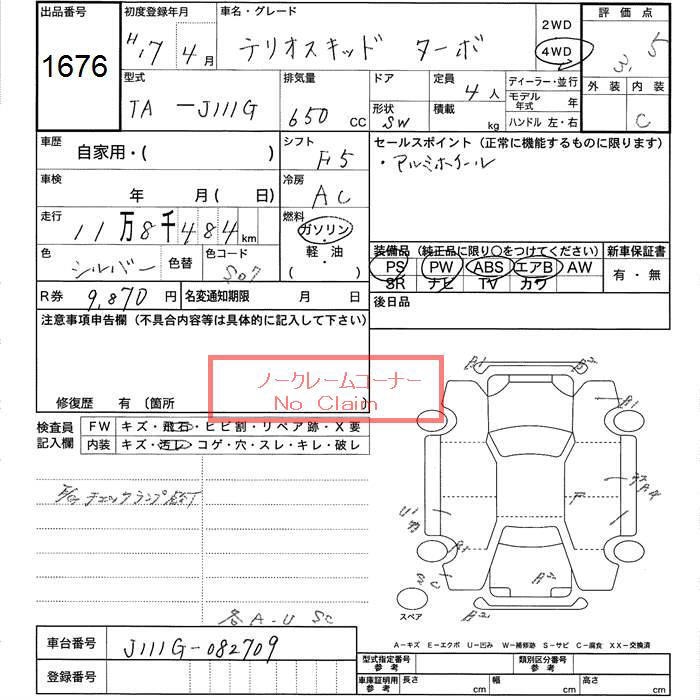 出品番号 初度登録年月 車名・グレード 2WD 評価点
1676 H17年4月 テリオスキッド ターボ 4WD 3.5
型式 排気量 ドア 定員 ディーラー・並行 外装 内装
TA-J111G 650 CC 形状 SW 4人 積載 kg モデル年式 年 ハンドル 左・右 C
車歴 自家用・( ) シフト F5 セールスポイント(正常に機能するものに限ります)
・アルミホイール
車検 年 月(日) 冷房 AC
走行 11万8千484km 燃料 ガソリン・軽油・( )
装備品(純正品に限り○をつけてください) 新車保証書
色 シルバー 色替 色コード S07
PS PW ABS エアB AW 有・無
SR ナビ TV カワ
R券 9,870円 名変通知期限 月 日 後日品
注意事項申告欄(不具合内容等は具体的に記入して下さい)
ノークレームコーナー
No Claim
修復歴 有 〔箇所
検査員記入欄 FW キズ・飛石・ヒビ割・リペア跡・X要
内装 キズ・汚レ・コゲ・穴・スレ・キレ・破レ
E/G チェックランプ点灯
スペア
各A-U SC
A-キズ E-エクボ U-凹み W-補修跡 S-サビ C-腐食 XX-交換済
車台番号 J111G-082709
登録番号
型式指定番号 参考 類別区分番号 参考
車庫証明用 参考 長さ cm 幅 cm 高さ cm